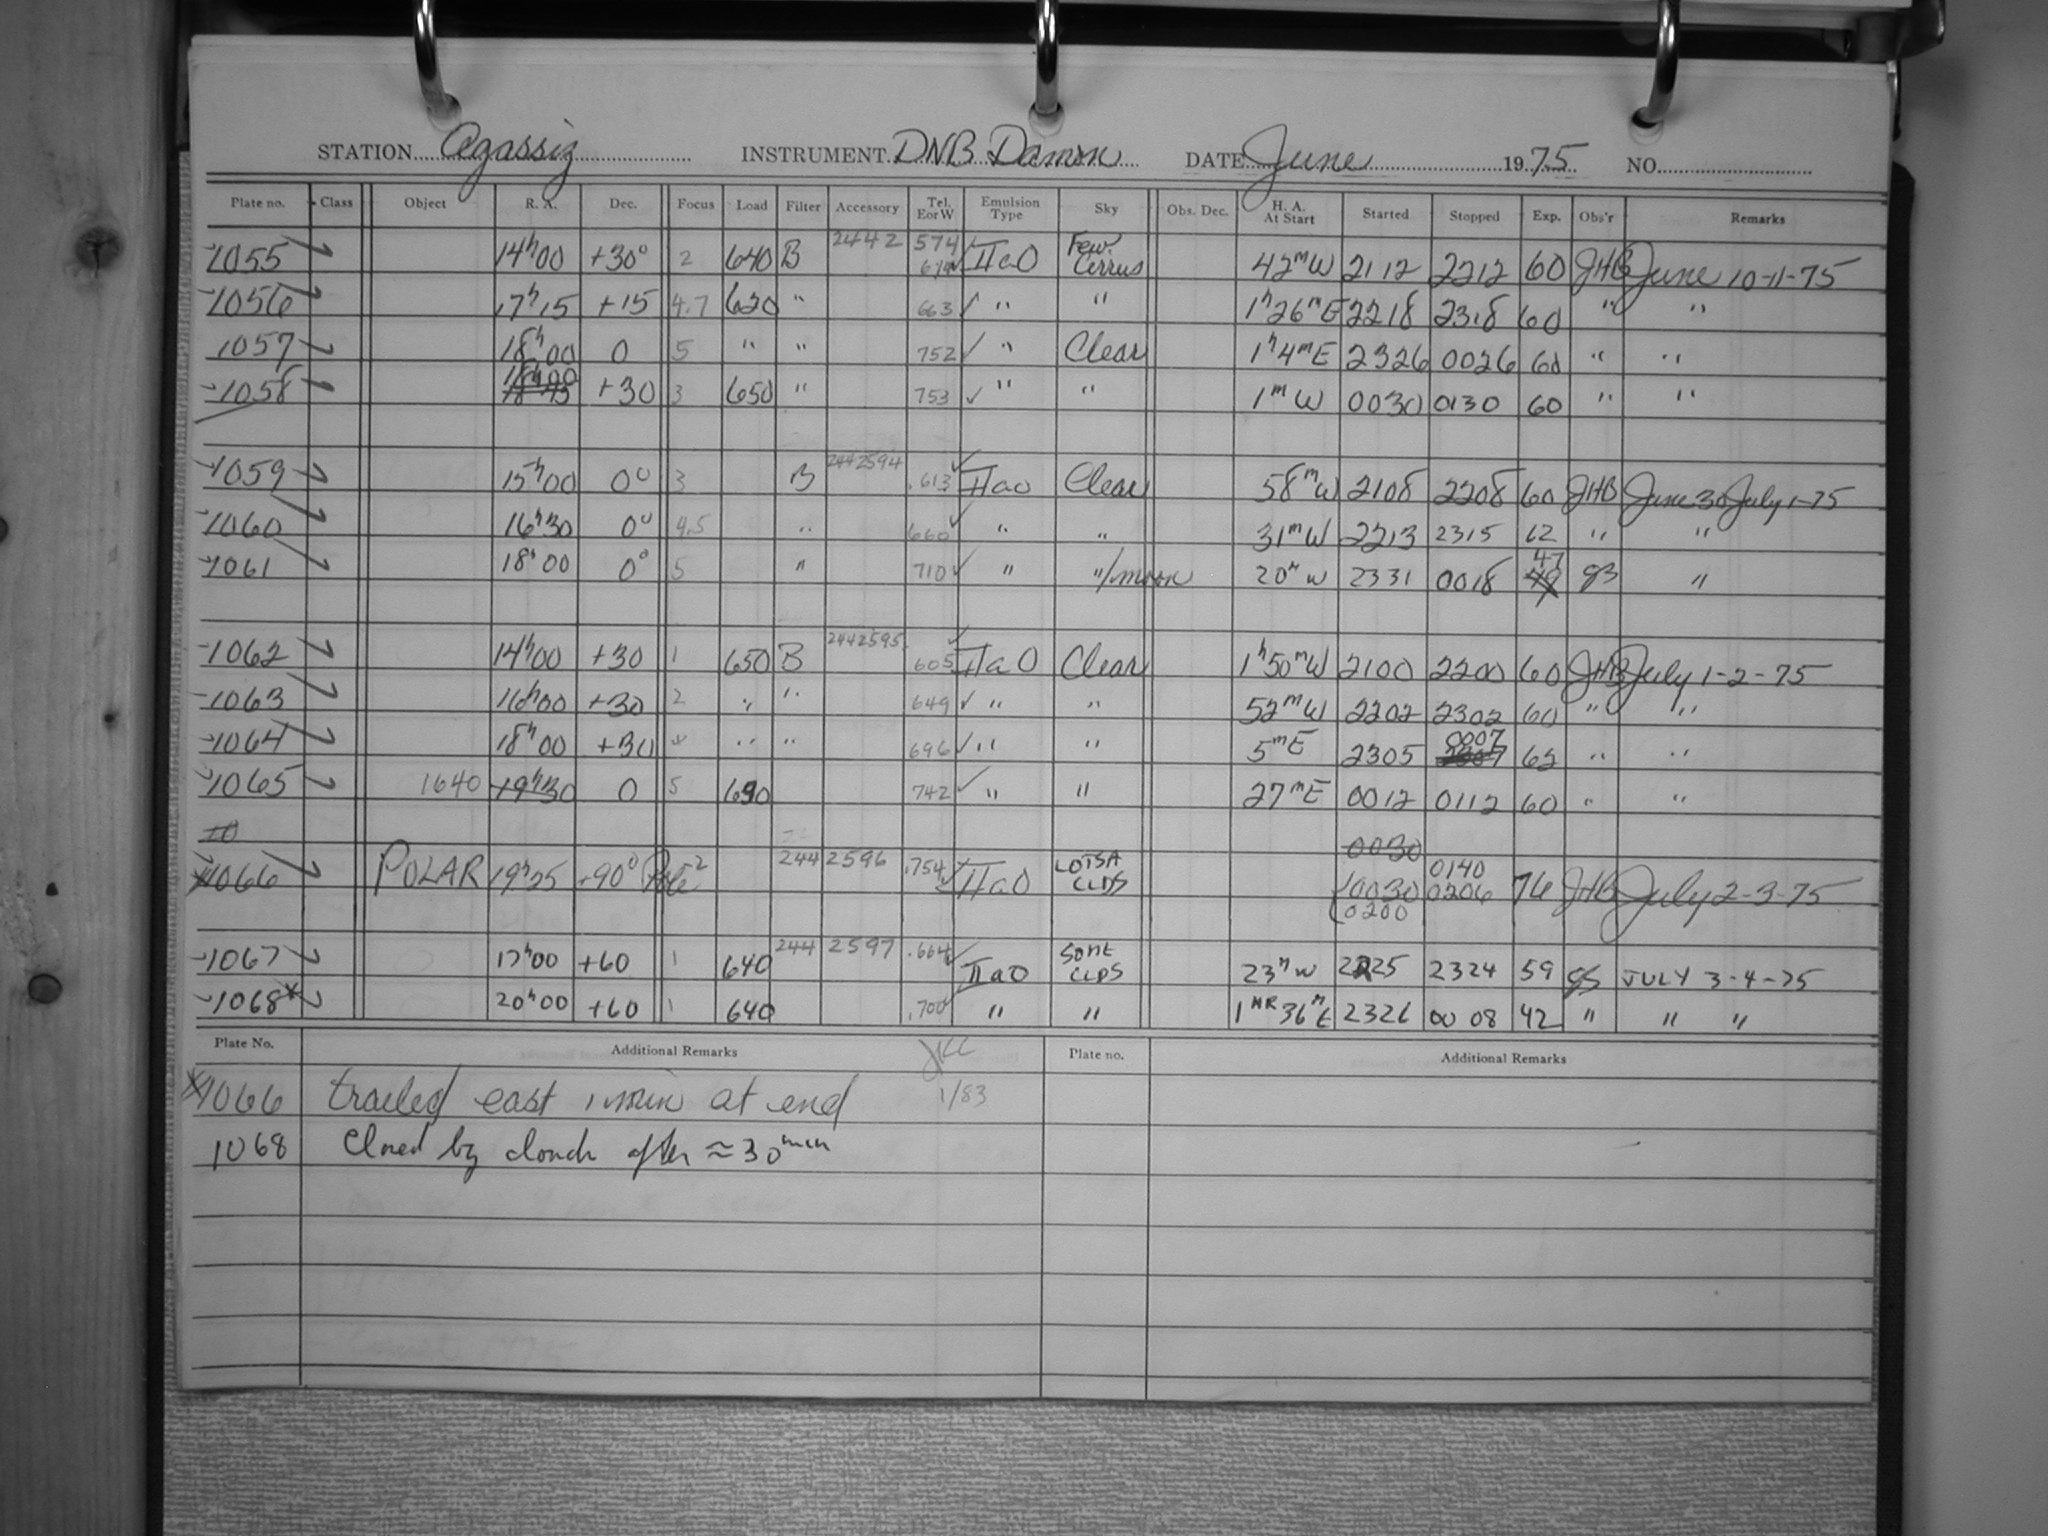 STATION Agassiz INSTRUMENT DNB Damon DATE June 1975 NO.
Plate no. Class Object R. A. Dec. Focus Load Filter Accessory Tel. E or W Emulsion Type Sky Obs. Dec. H. A. At Start Started Stopped Exp. Obs'r Remarks
1055 14h00 +30° 2 640 B 2442 574 IIaO Few Cirrus 42mW 2112 2212 60 JHB June 10-11-75
1056 17h15 +15 4.7 620 " 663 " " 1h26mE 2218 2318 60 " "
1057 18h00 0 5 " " 752 " Clear 1h4mE 2326 0026 60 " "
1058 18h00 +30 3 650 " 753 " " 1mW 0030 0130 60 " "
1059 15h00 0° 3 B 2442594 .613 IIaO Clear 58mW 2108 2208 60 JHB June 30 July 1-75
1060 16h30 0° 4.5 " 660 " " 31mW 2213 2315 62 " "
1061 18h00 0° 5 " 710 " "/moon 20mW 2331 0018 47 "
1062 14h00 +30 1 650 B 2442595 605 IIaO Clear 1h50mW 2100 2200 60 JHB July 1-2-75
1063 16h00 +30 2 " " 649 " " 52mW 2202 2302 60 " "
1064 18h00 +30 " " 696 " " 5mE 2305 0007 62 " "
1065 1640 19h30 0 5 690 742 " " 27mE 0012 0112 60 " "
10
0030
1066 POLAR 19h25 +90° Pole 2 244 2596 .754 IIaO LOTSA CLDS 0030 0140 76 JHB July 2-3-75
0200 0206
1067 17h00 +60 1 640 244 2597 .664 IIaO SOME CLDS 23mW 2225 2324 59 JULY 3-4-75
1068* 20h00 +60 1 640 .700 " " 1HR36mE 2326 0008 42 " " "
Plate No. Additional Remarks Plate no. Additional Remarks
*1066 trailed east 1 min at end 1/83
1068 Closed by clouds after ≈30min